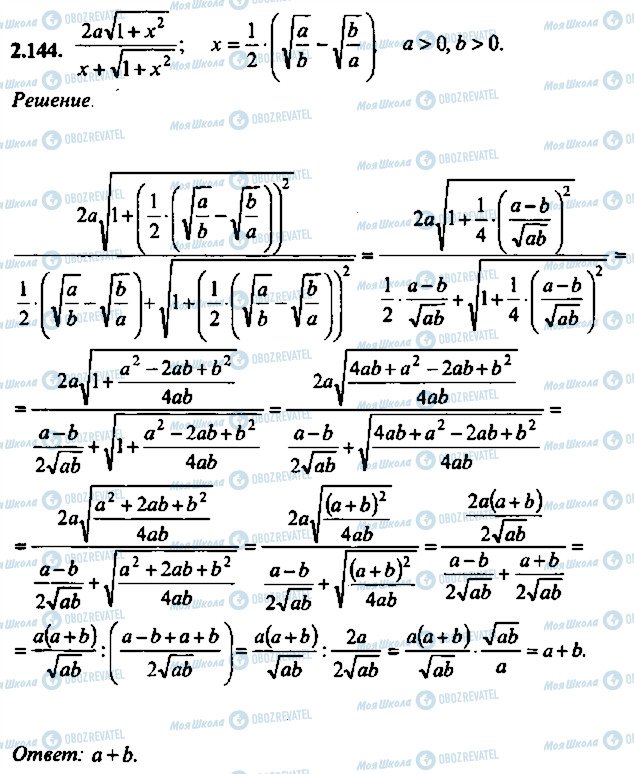 2.144. \frac{2a\sqrt{1+x^2}}{x+\sqrt{1+x^2}}; x = \frac{1}{2}·\left(\sqrt{\frac{a}{b}} - \sqrt{\frac{b}{a}}\right) a > 0, b > 0.
Решение.
\frac{2a\sqrt{1+\left(\frac{1}{2}·\left(\sqrt{\frac{a}{b}}-\sqrt{\frac{b}{a}}\right)\right)^2}}{\frac{1}{2}·\left(\sqrt{\frac{a}{b}}-\sqrt{\frac{b}{a}}\right)+\sqrt{1+\left(\frac{1}{2}·\left(\sqrt{\frac{a}{b}}-\sqrt{\frac{b}{a}}\right)\right)^2}} = \frac{2a\sqrt{1+\frac{1}{4}·\left(\frac{a-b}{\sqrt{ab}}\right)^2}}{\frac{1}{2}·\frac{a-b}{\sqrt{ab}}+\sqrt{1+\frac{1}{4}·\left(\frac{a-b}{\sqrt{ab}}\right)^2}} =
= \frac{2a\sqrt{1+\frac{a^2-2ab+b^2}{4ab}}}{\frac{a-b}{2\sqrt{ab}}+\sqrt{1+\frac{a^2-2ab+b^2}{4ab}}} = \frac{2a\sqrt{\frac{4ab+a^2-2ab+b^2}{4ab}}}{\frac{a-b}{2\sqrt{ab}}+\sqrt{\frac{4ab+a^2-2ab+b^2}{4ab}}} =
= \frac{2a\sqrt{\frac{a^2+2ab+b^2}{4ab}}}{\frac{a-b}{2\sqrt{ab}}+\sqrt{\frac{a^2+2ab+b^2}{4ab}}} = \frac{2a\sqrt{\frac{(a+b)^2}{4ab}}}{\frac{a-b}{2\sqrt{ab}}+\sqrt{\frac{(a+b)^2}{4ab}}} = \frac{\frac{2a(a+b)}{2\sqrt{ab}}}{\frac{a-b}{2\sqrt{ab}}+\frac{a+b}{2\sqrt{ab}}} =
= \frac{a(a+b)}{\sqrt{ab}} : \left(\frac{a-b+a+b}{2\sqrt{ab}}\right) = \frac{a(a+b)}{\sqrt{ab}} : \frac{2a}{2\sqrt{ab}} = \frac{a(a+b)}{\sqrt{ab}} · \frac{\sqrt{ab}}{a} = a+b.
Ответ: a + b.